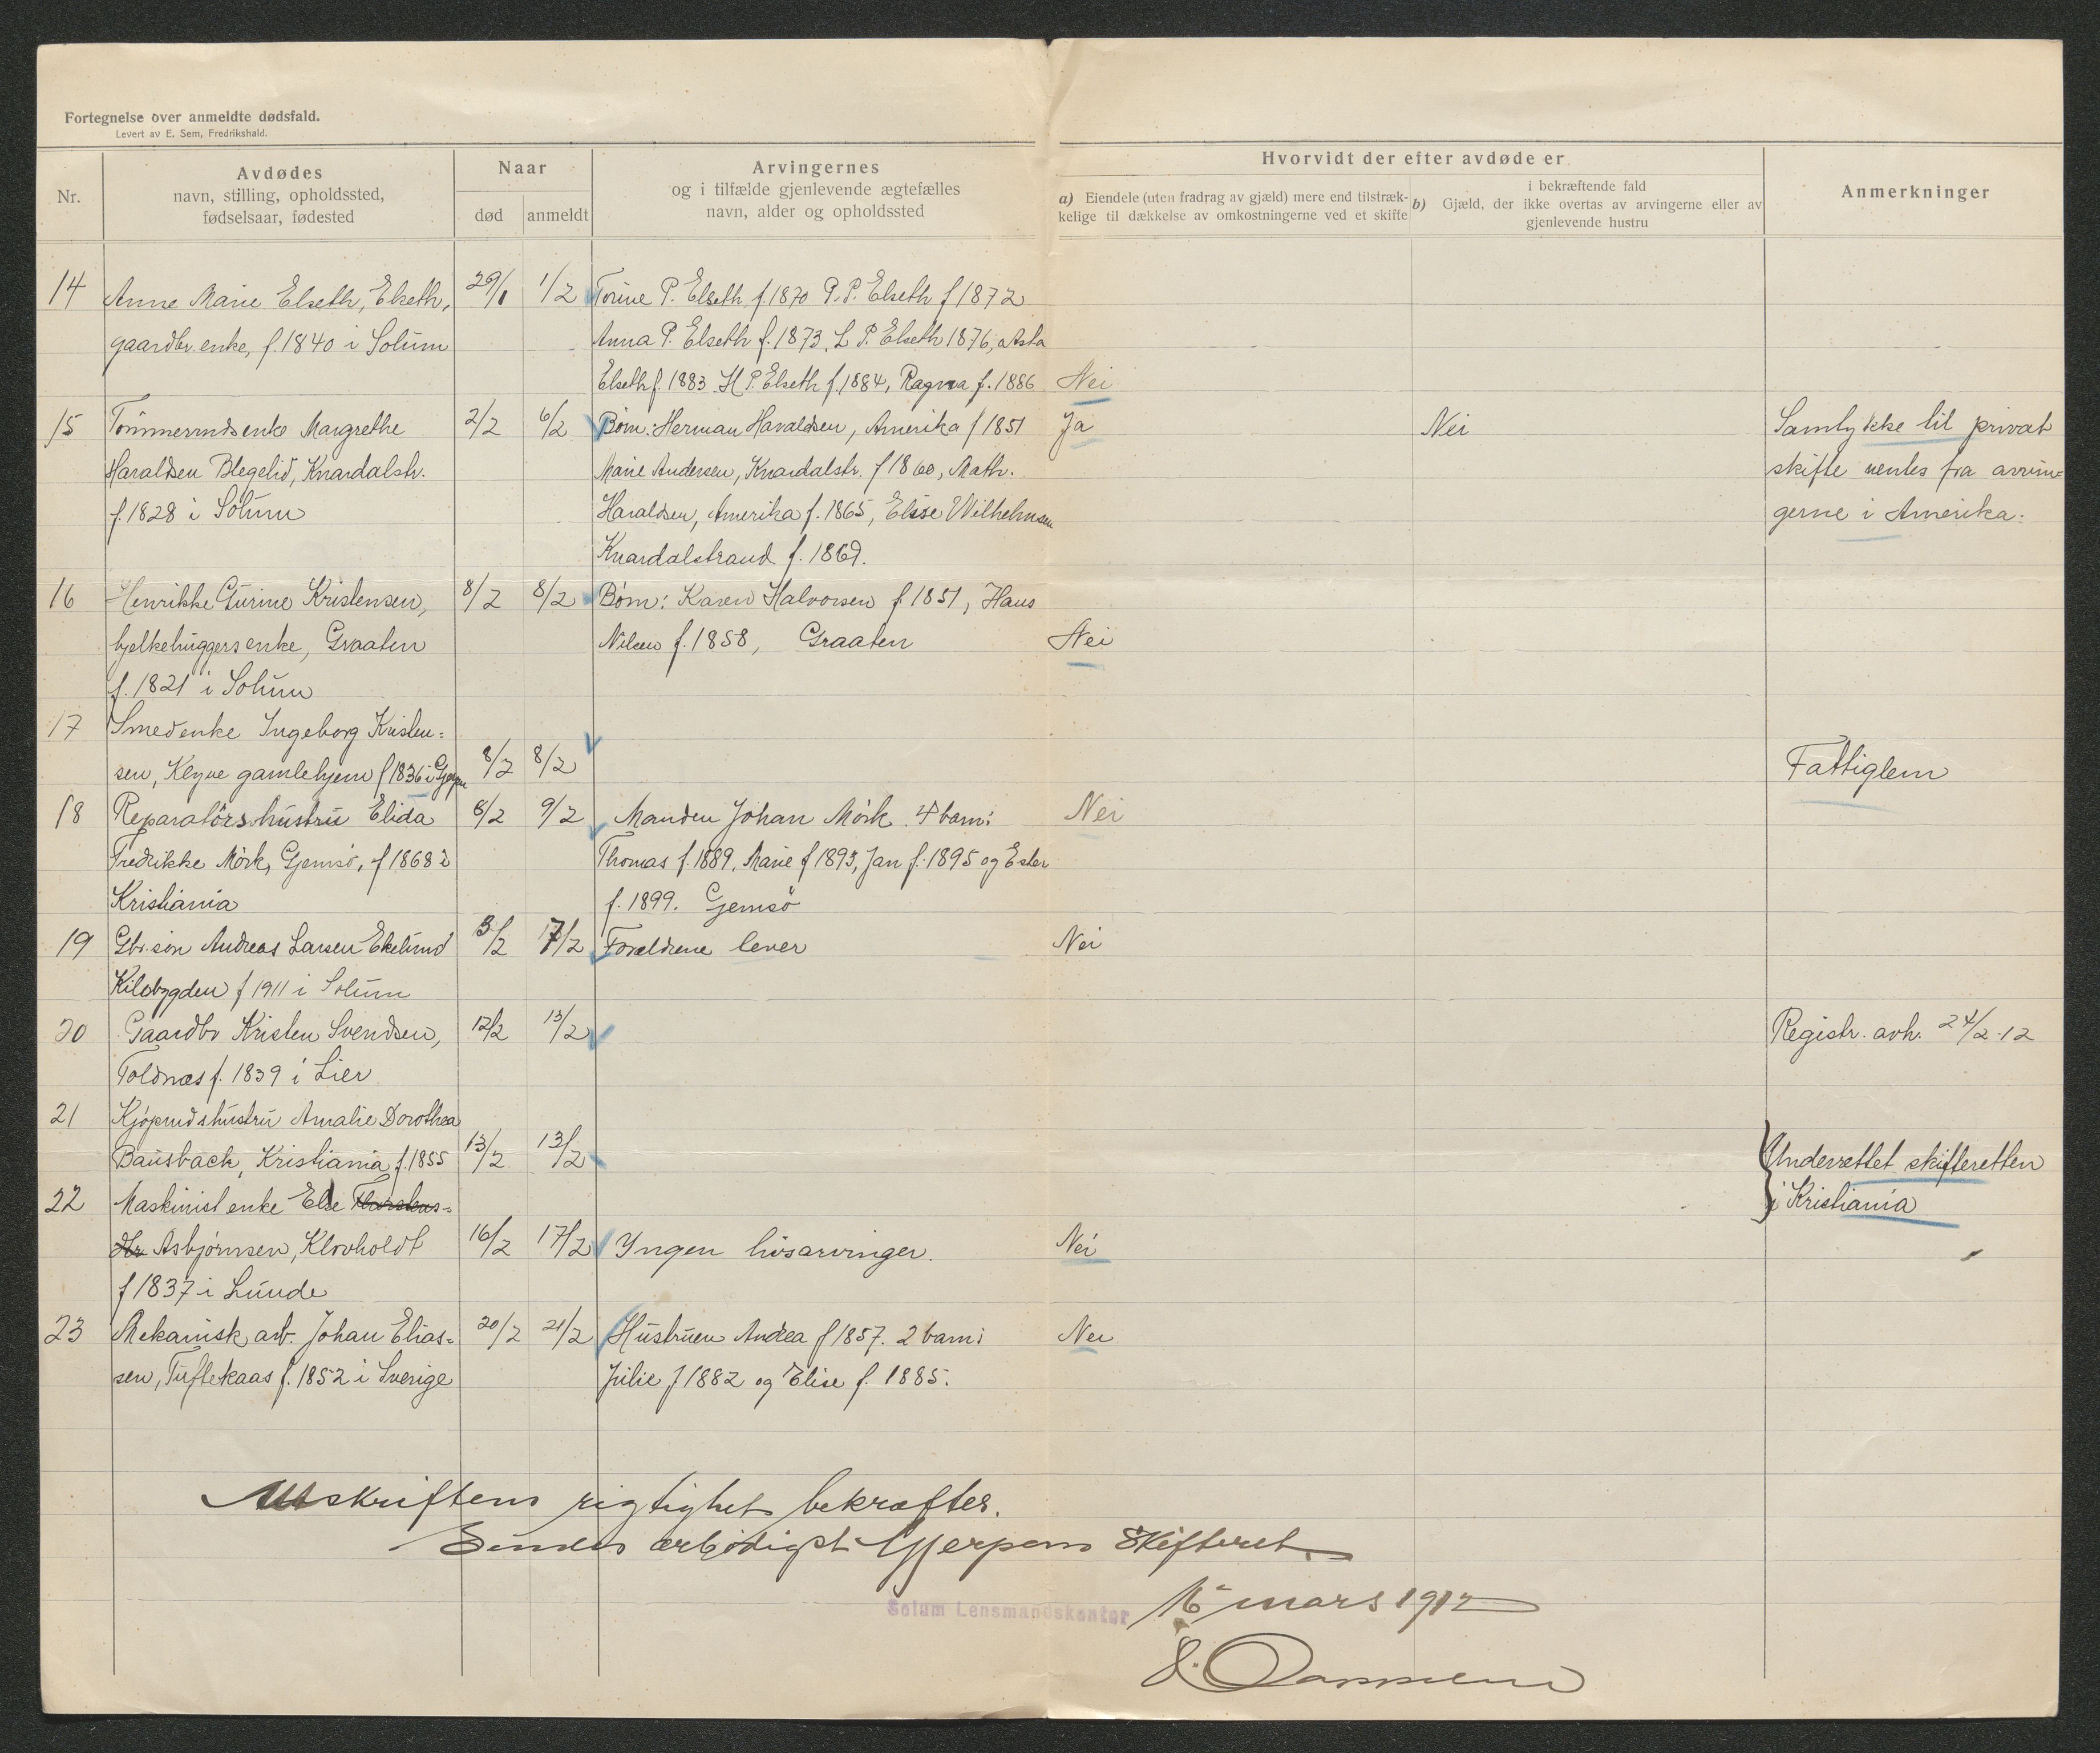 Fortegnelse over anmeldte dødsfald.
Levert av E. Sem, Fredrikshald.
Nr.
Avdødes
navn, stilling, opholdssted,
fødselsaar, fødested
Naar
død anmeldt
Arvingernes
og i tilfælde gjenlevende ægtefælles
navn, alder og opholdssted
Hvorvidt der efter avdøde er
a) Eiendele (uten fradrag av gjæld) mere end tilstræk-
kelige til dækkelse av omkostningerne ved et skifte
i bekræftende fald
b) Gjæld, der ikke overtas av arvingerne eller av
gjenlevende hustru
Anmerkninger
14 Anne Marie Elseth, Elseth, 29/1 1/2 Torine P. Elseth f. 1870 P. P. Elseth f 1872
gaardbr. enke, f. 1840 i Solum Anna P. Elseth f. 1873, L P. Elseth 1876, Asta
Elseth f. 1883 H P. Elseth f. 1884, Ragna f. 1886 Nei
15 Tömmermdsenke Margrethe 2/2 6/2 Börn: Herman Haraldsen, Amerika f 1851 Ja Nei Samtykke til privat
Haraldsen Blegelid, Knardalstr. Marie Andersen, Knardalstr. f 1860, Math. skifte ventes fra arvin=
f. 1828 i Solum Haraldsen, Amerika f. 1865, Elise Wilhelmsen gerne i Amerika.
Knardalstrand f. 1869.
16 Henrikke Gurine Kristensen, 8/2 8/2 Börn: Karen Halvorsen f 1851, Hans
bjelkehuggersenke, Graaten Nilsen f. 1858, Graaten Nei
f. 1821 i Solum
17 Smedenke Ingeborg Kristen=
sen, Klyve gamlehjem f 1836 i Gjerpen 8/2 8/2 Fattiglem
18 Reparatörshustru Elida 8/2 9/2 Manden Johan Mörk. 4 barn: Nei
Fredrikke Mörk, Gjemsö, f 1868 i Thomas f. 1889, Marie f 1893, Jan f. 1895 og Ester
Kristiania f. 1899. Gjemsö
19 Gbr. sön Andreas Larsen Ekelund 3/2 17/2 Forældrene lever Nei
Kilebygden f 1911 i Solum
20 Gaardbr Kristen Svendsen, 12/2 13/2 Registr. avh. 24/2 12
Toldnæs f. 1839 i Lier
21 Kjöpmdshustru Amalie Dorothea
Bausback, Kristiania f. 1855 13/2 13/2 Underrettet skifteretten
22 Maskinist enke Else Thorstens= i Kristiania
dtr Asbjörnsen, Klovholdt 16/2 17/2 Yngen livsarvinger. Nei
f 1837 i Lunde
23 Mekanisk arb. Johan Elias= 20/2 21/2 Hustruen Andea f 1857. 2 barn: Nei
sen, Tuftekaas f. 1852 i Sverige Julie f 1882 og Elise f. 1885.
Utskriftens rigtighet bekræftes.
Sendes ærbødigst Gjerpens Skifteret
Solum Lensmandskontor 16 mars 1912